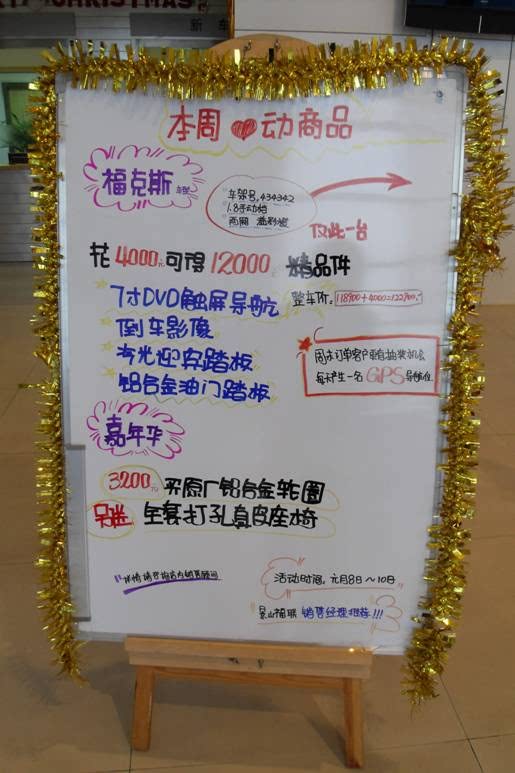 CHRISTMAS
本周❤动商品
福克斯 车型
车架号:434342
1.8手动档
两厢
仅此一台
花4000元可得12000元精品件
7寸DVD触屏导航
整车价:118900+4000=122900元
倒车影像
夸光迎宾踏板
铝合金油门踏板
周末订单客户更有抽奖机会
每天产生一名GPS导航仪
嘉年华
3200元买原厂铝合金轮圈
另送 全套打孔真皮座椅
详情请咨询店内销售顾问
活动时间:元月8日~10日
景山福联 销售经理推荐!!!